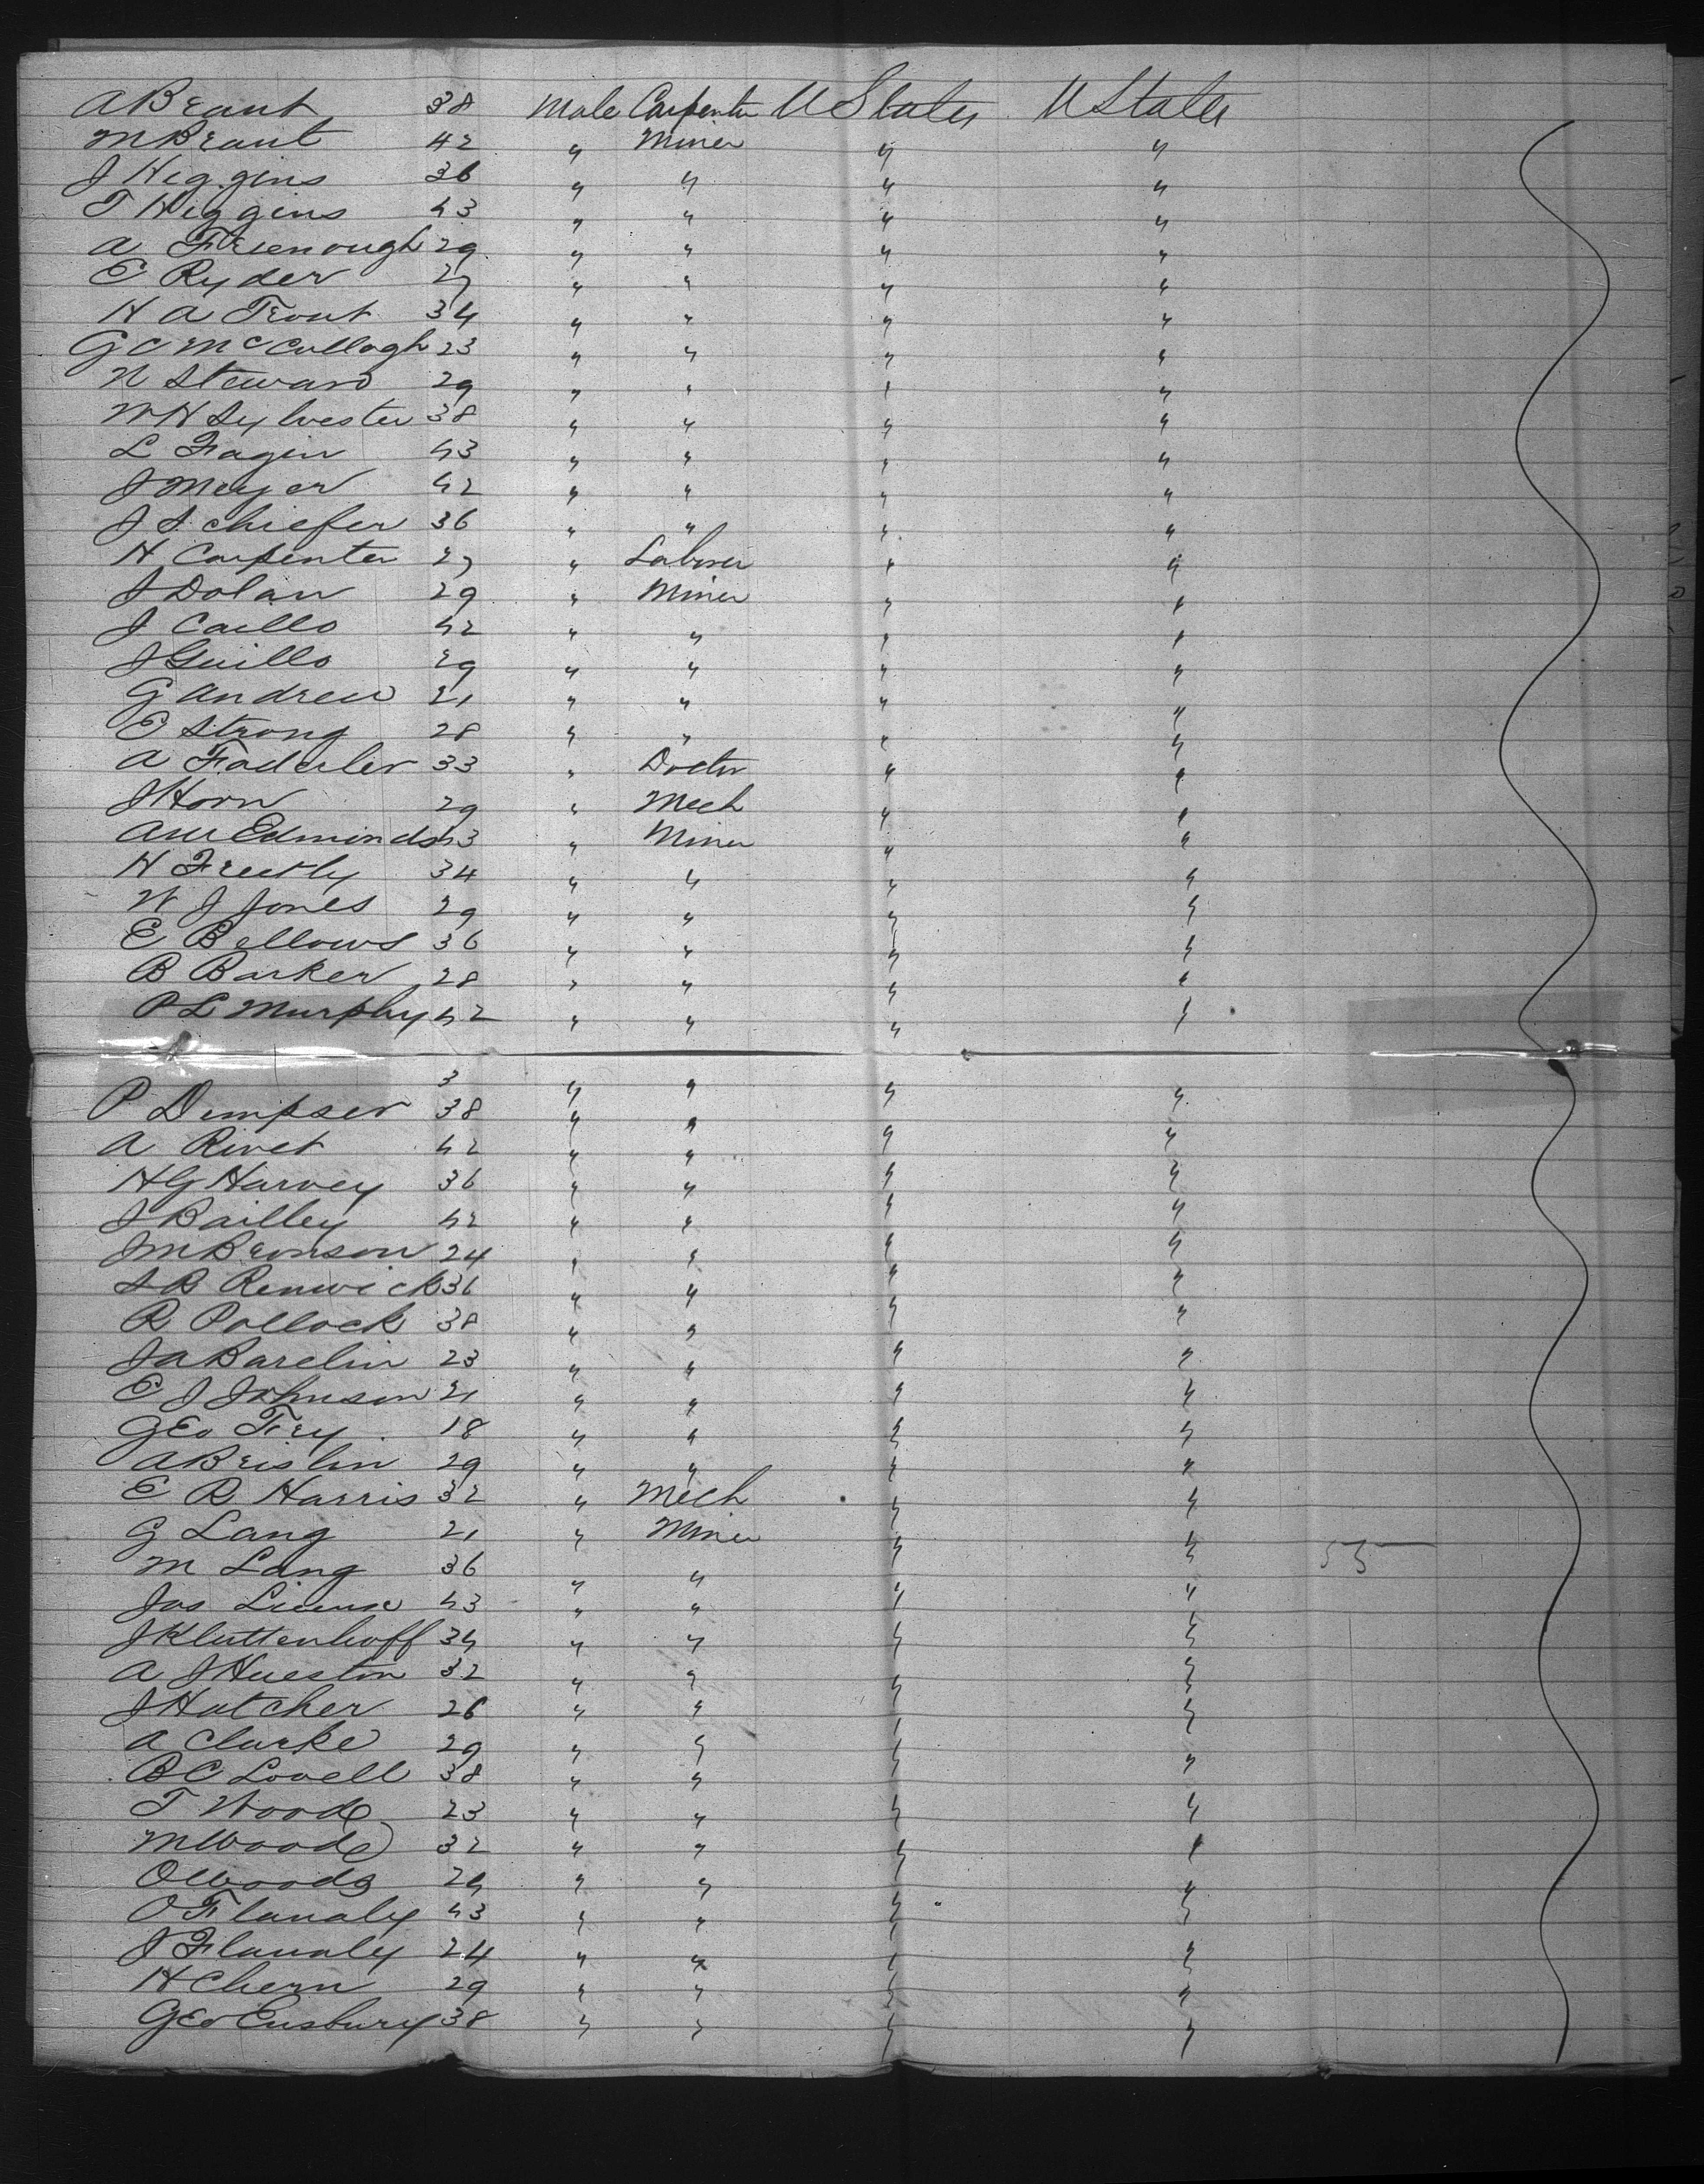 A Brant 38 Male Carpenter U States U States
M Brant 42 " Miner " "
J Higgins 36 " " " "
T Higgins 43 " " " "
A Freenough 29 " " " "
E Ryder 27 " " " "
H A Trout 34 " " " "
G C McCullagh 23 " " " "
N Steward 29 " " " "
W H Sylvester 38 " " " "
L Fagin 43 " " " "
J Meyer 42 " " " "
J Schiefer 36 " " " "
H Carpenter 27 " Laborer " "
J Dolan 29 " Miner " "
J Caillo 42 " " " "
J Guillo 29 " " " "
G Andrew 21 " " " "
E Strong 28 " " " "
A Faderler 33 " Doctor " "
J Horn 29 " Mech " "
A W Edmonds 43 " Miner " "
H Freetly 34 " " " "
W J Jones 29 " " " "
E Bellows 36 " " " "
B Barker 28 " " " "
P L Murphy 42 " " " "
3 " " " "
P Dempser 38 " " " "
A Rivet 42 " " " "
H G Harvey 36 " " " "
J Bailley 42 " " " "
J M Bronson 24 " " " "
S B Renwick 36 " " " "
R Pollock 38 " " " "
J A Barclin 23 " " " "
E J Johnson 21 " " " "
Geo Frey 18 " " " "
A Brislin 29 " " " "
E R Harris 32 " Mech " "
G Lang 21 " Miner " "
M Lang 36 " " " " 55
Jos 43 " " " "
J Kluttenhoff 34 " " " "
A J Hueston 32 " " " "
J Hatcher 26 " " " "
A Clarke 29 " " " "
B C Lovell 38 " " " "
T Woods 23 " " " "
M Woods 32 " " " "
O Woods 29 " " " "
O Flanaly 43 " " " "
J Flanaly 24 " " " "
H Chern 29 " " " "
Geo Eusbury 38 " " " "